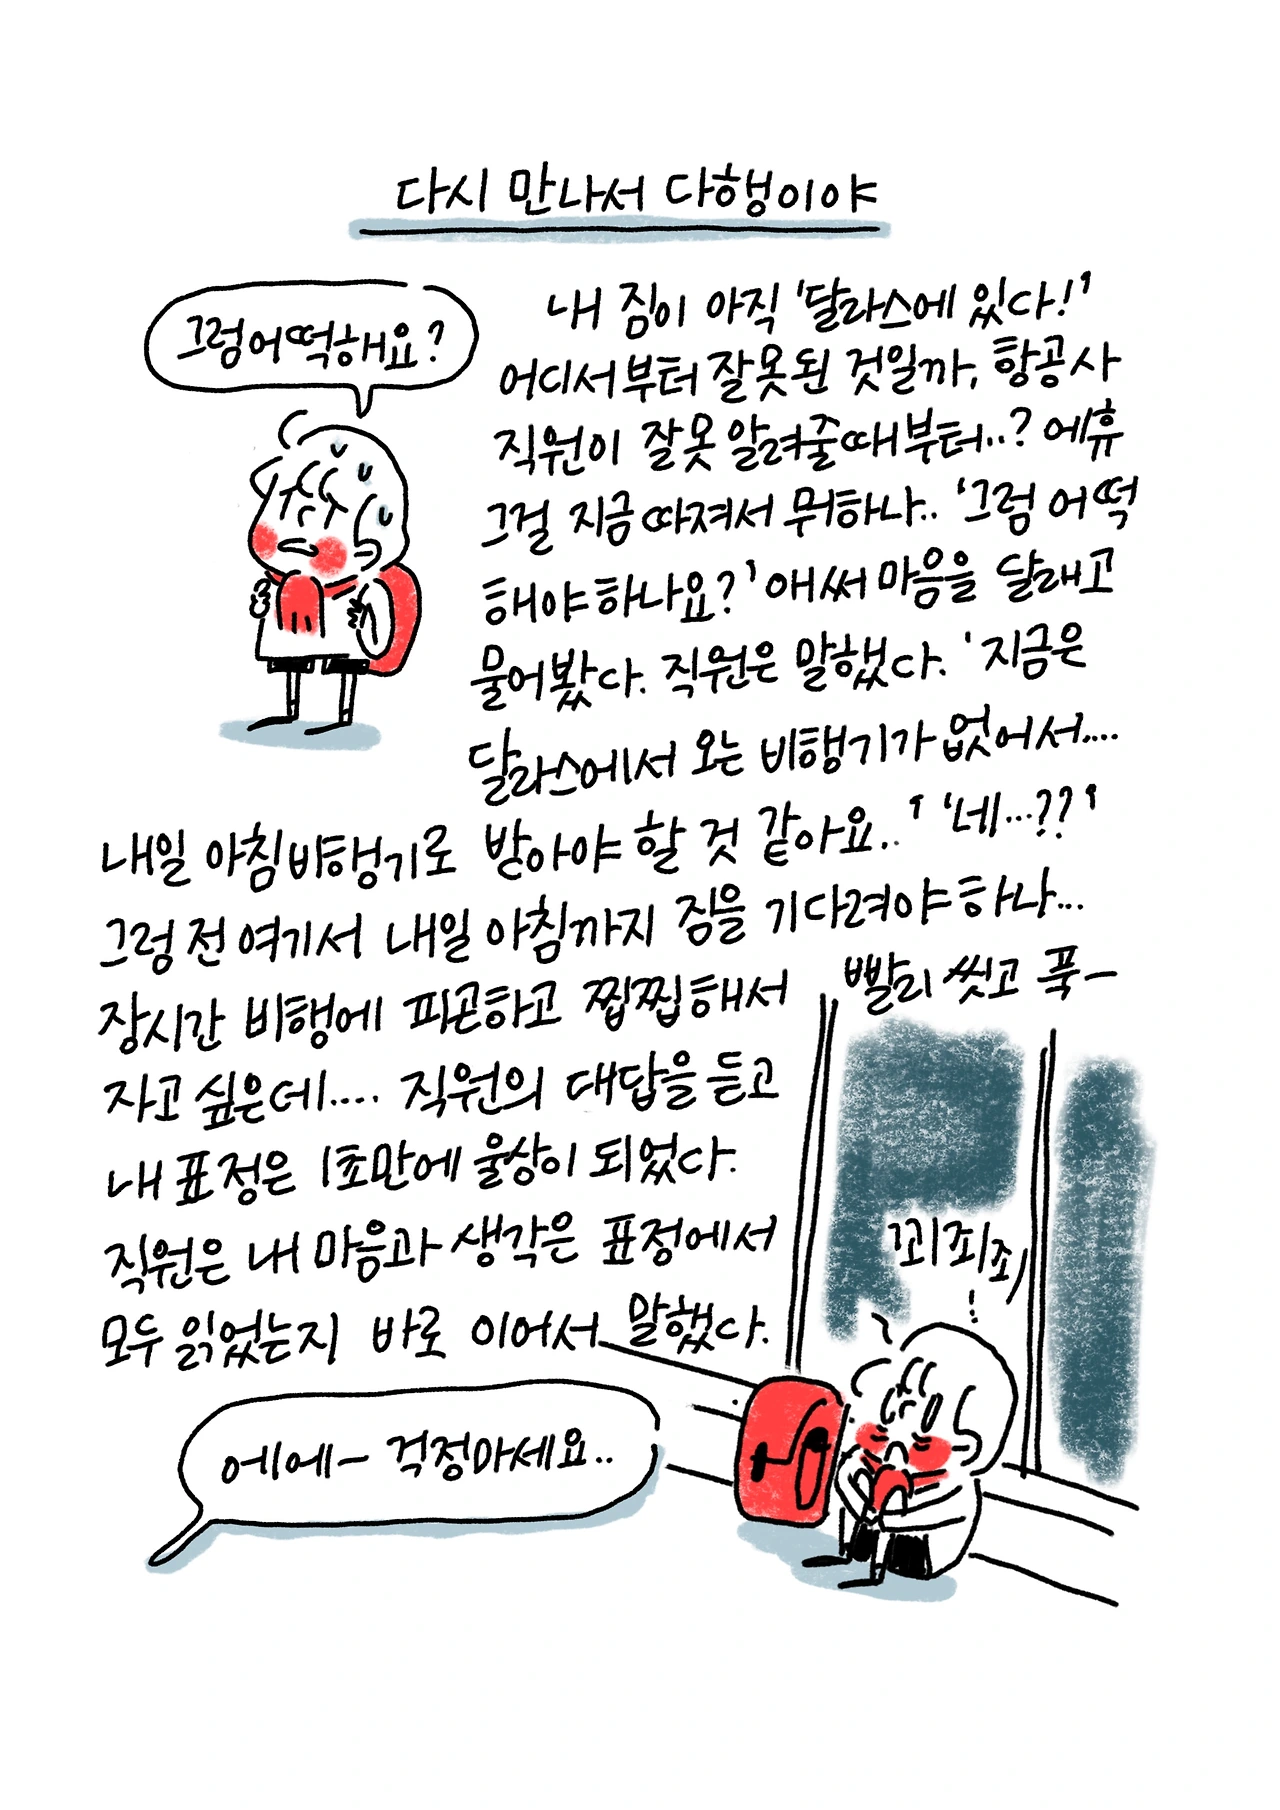 다시 만나서 다행이야
그럼어떡해요?
내 짐이 아직 '달라스에 있다!'
어디서부터 잘못된 것일까, 항공사
직원이 잘못 알려줄때부터..? 에휴
그걸 지금 따져서 뭐하나.. '그럼 어떡
해야하나요?' 애써 마음을 달래고
물어봤다. 직원은 말했다. '지금은
달라스에서 오는 비행기가 없어서....
내일 아침비행기로 받아야 할 것 같아요..' '네...??'
그렁 전 여기서 내일 아침까지 짐을 기다려야하나...
장시간 비행에 피곤하고 찝찝해서 빨리 씻고 푹—
자고 싶은데.... 직원의 대답을 듣고
내 표정은 1초만에 울상이 되었다.
직원은 내 마음과 생각은 표정에서
모두 읽었는지 바로 이어서 말했다.
꾀죄죄
에에— 걱정마세요..